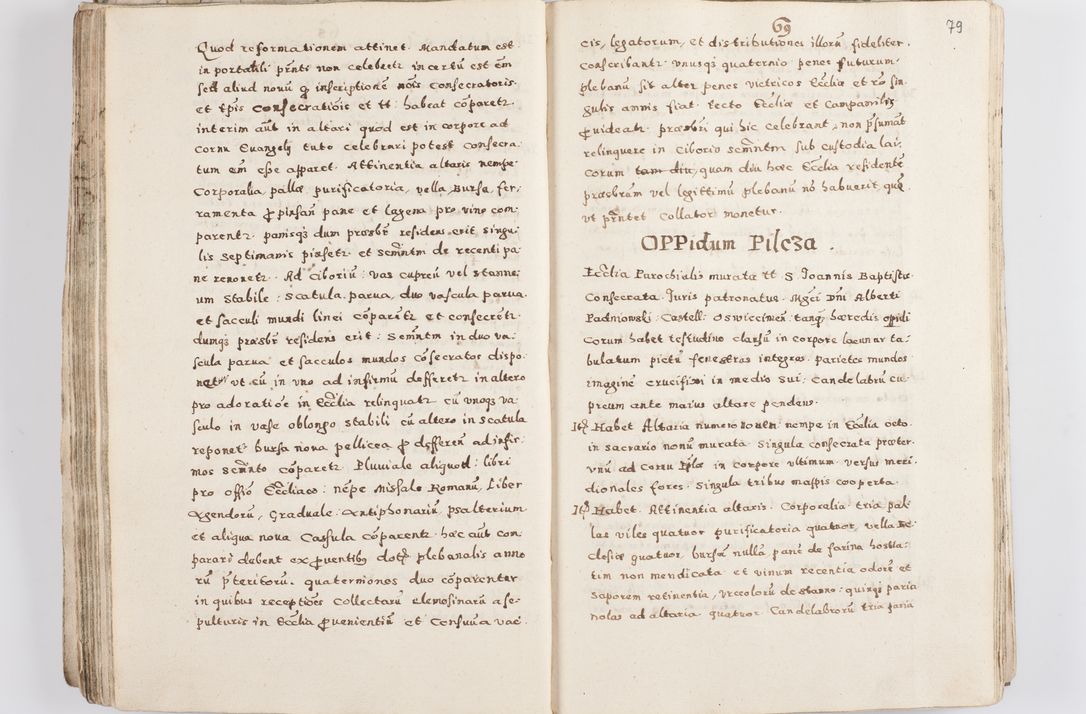 Quod reformationem attinet. Mandatum est
in portatili pñti non celebretz incertũ est em̃
sed aliud novũ ꝑ inscriptionẽ nõis consecratoris
et tp̃is consecratiõis et tt: habeat cõparetz
interim aũt in altari quod est in corpore ad
Cornu Euangelÿ tuto celebrari potest consecra:
tum em̃ esse apparet. Attinentia altaris nempe
Corporalia, pallæ, purificatoria, vella, Bursa, fer:
ramenta ꝓ pane et lagena pro vino com:
parentz. panisqz dum præsbr̃ residens erit, singu:
lis septimanis et Semñtm de recenti pa:
ne renovetz. Ad Ciboriũ: vas cupreũ vel stanne:
um stabile: scatula parua, duo vascula parua
et sacculi mundi linei cõparẽtz et consecrẽtz.
dumqz præsbr̃ residens erit: Semñtm in duo va:
scula parua et sacculos mundos cõsecratos dispo:
net, ut cũ in vno ad infirmũ defferetz in altero
pro adoratiõe in Eccĺia relinquatz cũ vnoqz va:
sculo in vase oblongo stabili cũ altero in scatula
reponet bursa nova pellicea ꝓ defferen ad infir:
mos Semñto cõparetz. Pluuiale aliquod: libri
pro offõ Eccĺiaco: nẽpe Missale Romanũ, Liber
Agendorũ, Graduale. Antiphonariũ, psalterium
et aliqua nova Casula cõparentz. hæc aũt com:
parari debent ex ꝓuentibs dotis plebanalis anno
rũ p̃teritorũ. quaterniones duo cõparenter
in quibus receptiões Collectarũ elemosinarũ a se:
pulturis in Eccĺia ꝓuenientiũ et

69
79
cis, legatorum, et distributiones illorũ fideliter.
Conscribantz. vnusqz quaternio penes futurum
plebanũ sit alter penes vietricos Eccĺiæ et rõ sin:
gulis annis fiat. Tecto Eccĺiæ et Campanilis
ꝓvideatz. præsbr̃i qui hic celebrant, non p̃sumãt
relinquere in Ciborio Semñtm sub custodia lai:
corum tam diu, quam diu hæc Eccĺia residentẽ
præsbr̃um vel legittimũ plebanũ nõ habuerit, quẽ
vt p̃ntet Collator monetur.
OPPidum Pilcza.
Eccĺia Parochialis murata tt S. Joannis Baptistæ
Consecrata. Juris patronatus. Mgci Dñi Alberti
Padniowski Castell: Oswiecimen̄ tanqz hæredis opidi
Corum habet testudine clausũ in corpore lacunar ta:
bulatum pictũ fenestras integras. parietes mundos
imaginẽ crucifixi in medio sui: Candelabrũ cu:
preum ante maius altare pendens.
Itẽ Habet Altaria numero nouem: nempe in Eccĺia octo.
in sacrario nonũ murata. Singula consecrata præter
vnũ ad Cornu Epĺæ in corpore vltimum versus meri:
dionales fores. Singula tribus mappis cooperta.
Itẽ Habet. Attinentia altaris. Corporalia tria pal:
las viles quatuor purificatoria quatuor, vella
quatuor, bursã nullã, panẽ de farina hostia:
tim non mendicata et vinum recentia odorẽ et
saporem retinentia, vrceolorũ de stanno: quinqz paria
nolas ad altaria quatuor Candelabrorũ tria paria